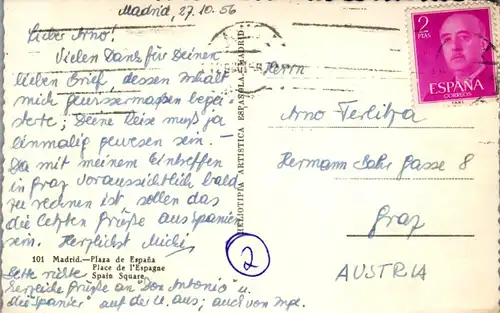 Madrid, 27.10.56
Lieber Arno!
Vielen Dank für Deinen
lieben Brief, dessen Inhalt
mich gewissermaßen begei-
sterte; Deine Reise muß ja
einmalig gewesen sein. -
Da mit meinem Eintreffen
in Graz voraussichtlich bald
zu rechnen ist, sollen das
die letzten Grüße aus Spanien
sein. Herzlichst Michi
101 Madrid.—Plaza de España
Place de l'Espagne
Spain Square
Bitte richte
herzliche Grüße an "Don Antonio" u.
die "Spanier" auf der U. aus; auch von
HELIOTIPIA ARTISTICA ESPAÑOLA - MADRID
2
PTAS
ESPAÑA
CORREOS
Herrn
Arno Terlitza
Hermann Bahr Gasse 8
Graz
AUSTRIA
2